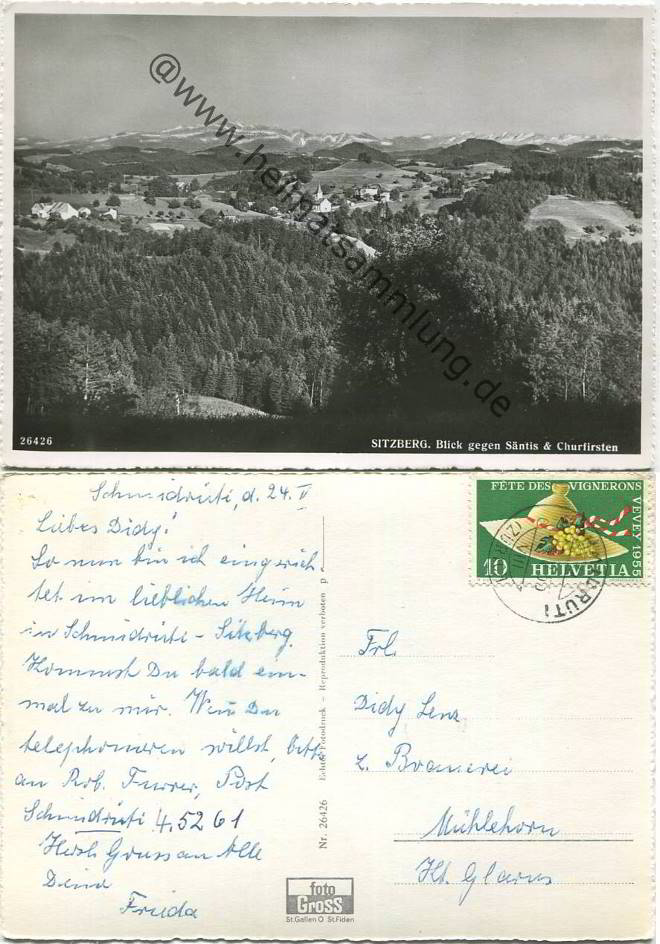 @www.heimatsammlung.de
26426
SITZBERG. Blick gegen Säntis & Churfirsten
Schmidrüti, d. 24. V
Liebes Didy!
So nun bin ich eingerich-
tet im lieblichen Heim
in Schmidrüti - Sitzberg.
Kommst Du bald ein-
mal zu mir. Wenn Du
telephonieren willst, bitte
an Rob. Furrer, Post
Schmidrüti 4.52 61
Herzl. Gruss an Alle
Deine
Frieda
Nr. 26426 Echte Fotodruck – Reproduktion verboten p
foto
GROSS
St.Gallen O St.Fiden
FÊTE DES VIGNERONS
VEVEY 1955
10 HELVETIA
Frl.
Didy Lenz
z. Brauerei
Mühlehorn
Kt. Glarus